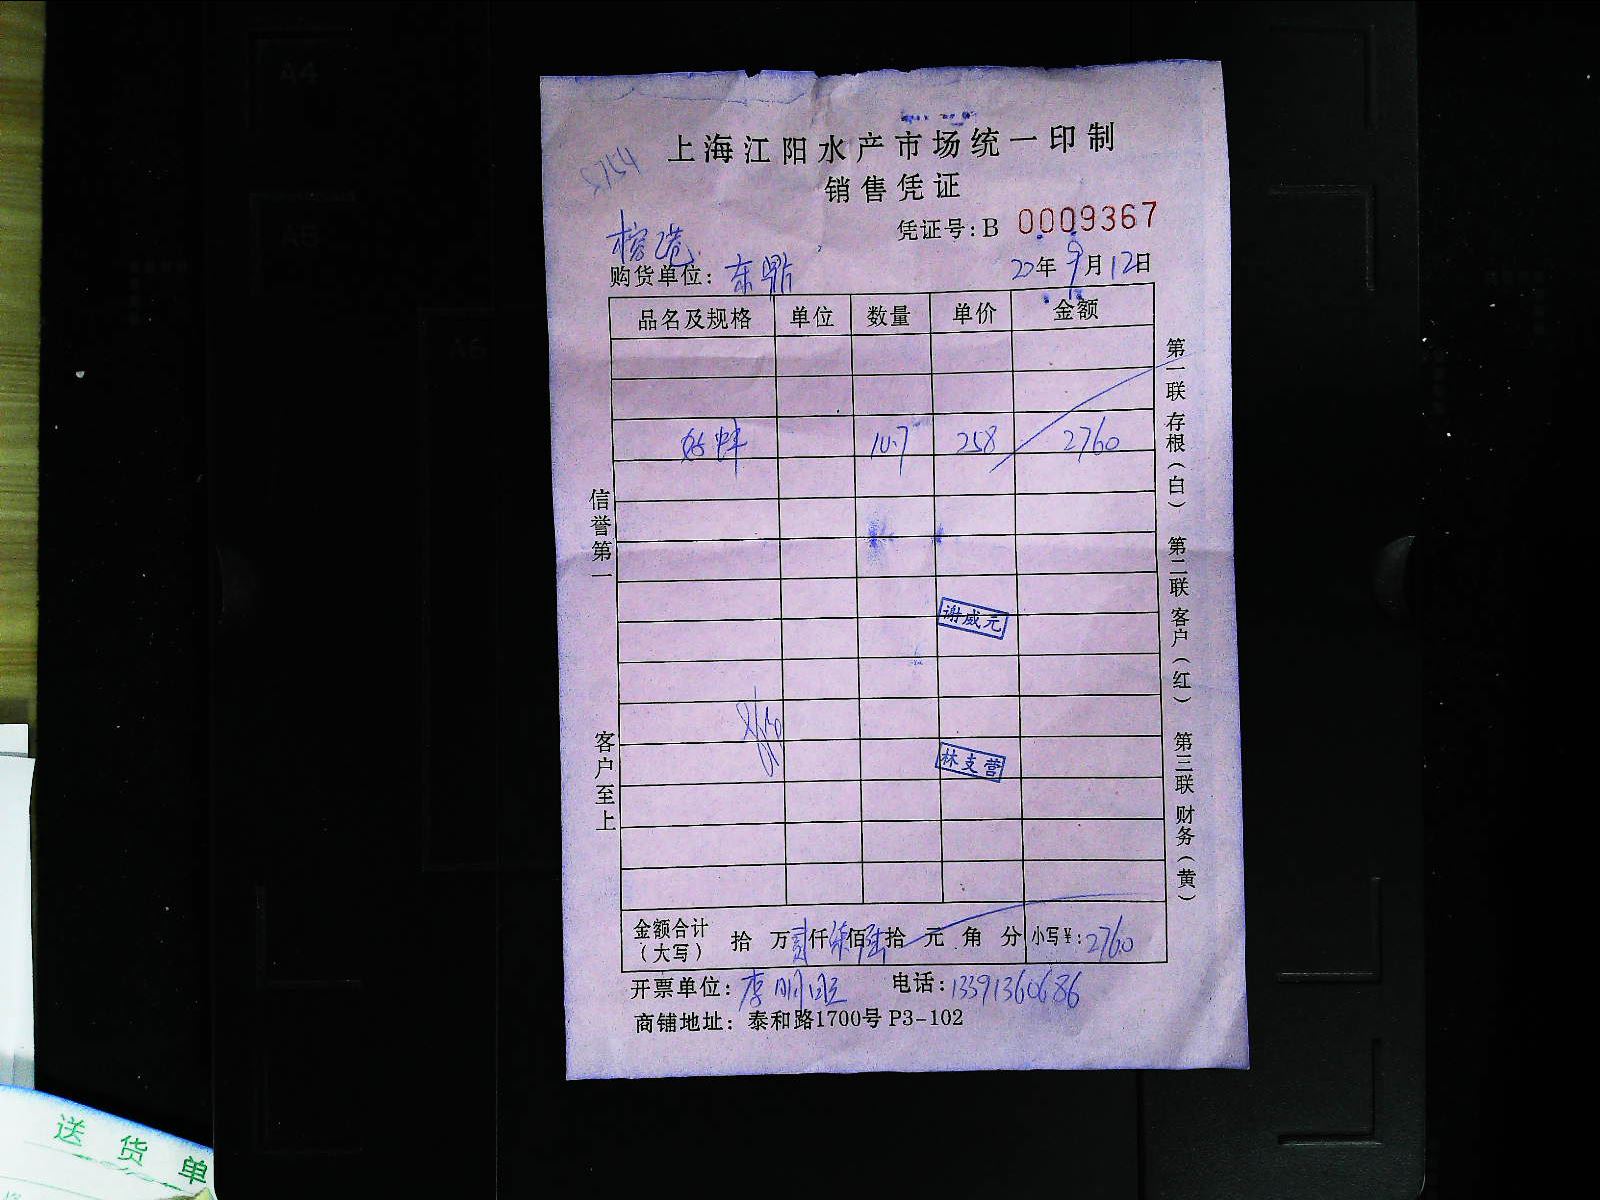 A4
A5
A6
5754
上海江阳水产市场统一印制
销售凭证
凭证号:B 0009367
榕港
购货单位: 东鼎 22年9月12日
品名及规格 单位 数量 单价 金额
蚌 10.7 258 2760
谢威元
林支营
金额合计(大写) 拾 万贰仟柒佰陆拾 元 角 分 小写¥: 2760
开票单位: 李明 电话: 13391360686
商铺地址: 泰和路1700号P3-102
信誉第一
客户至上
第一联 存根(白)
第二联 客户(红)
第三联 财务(黄)
送货单